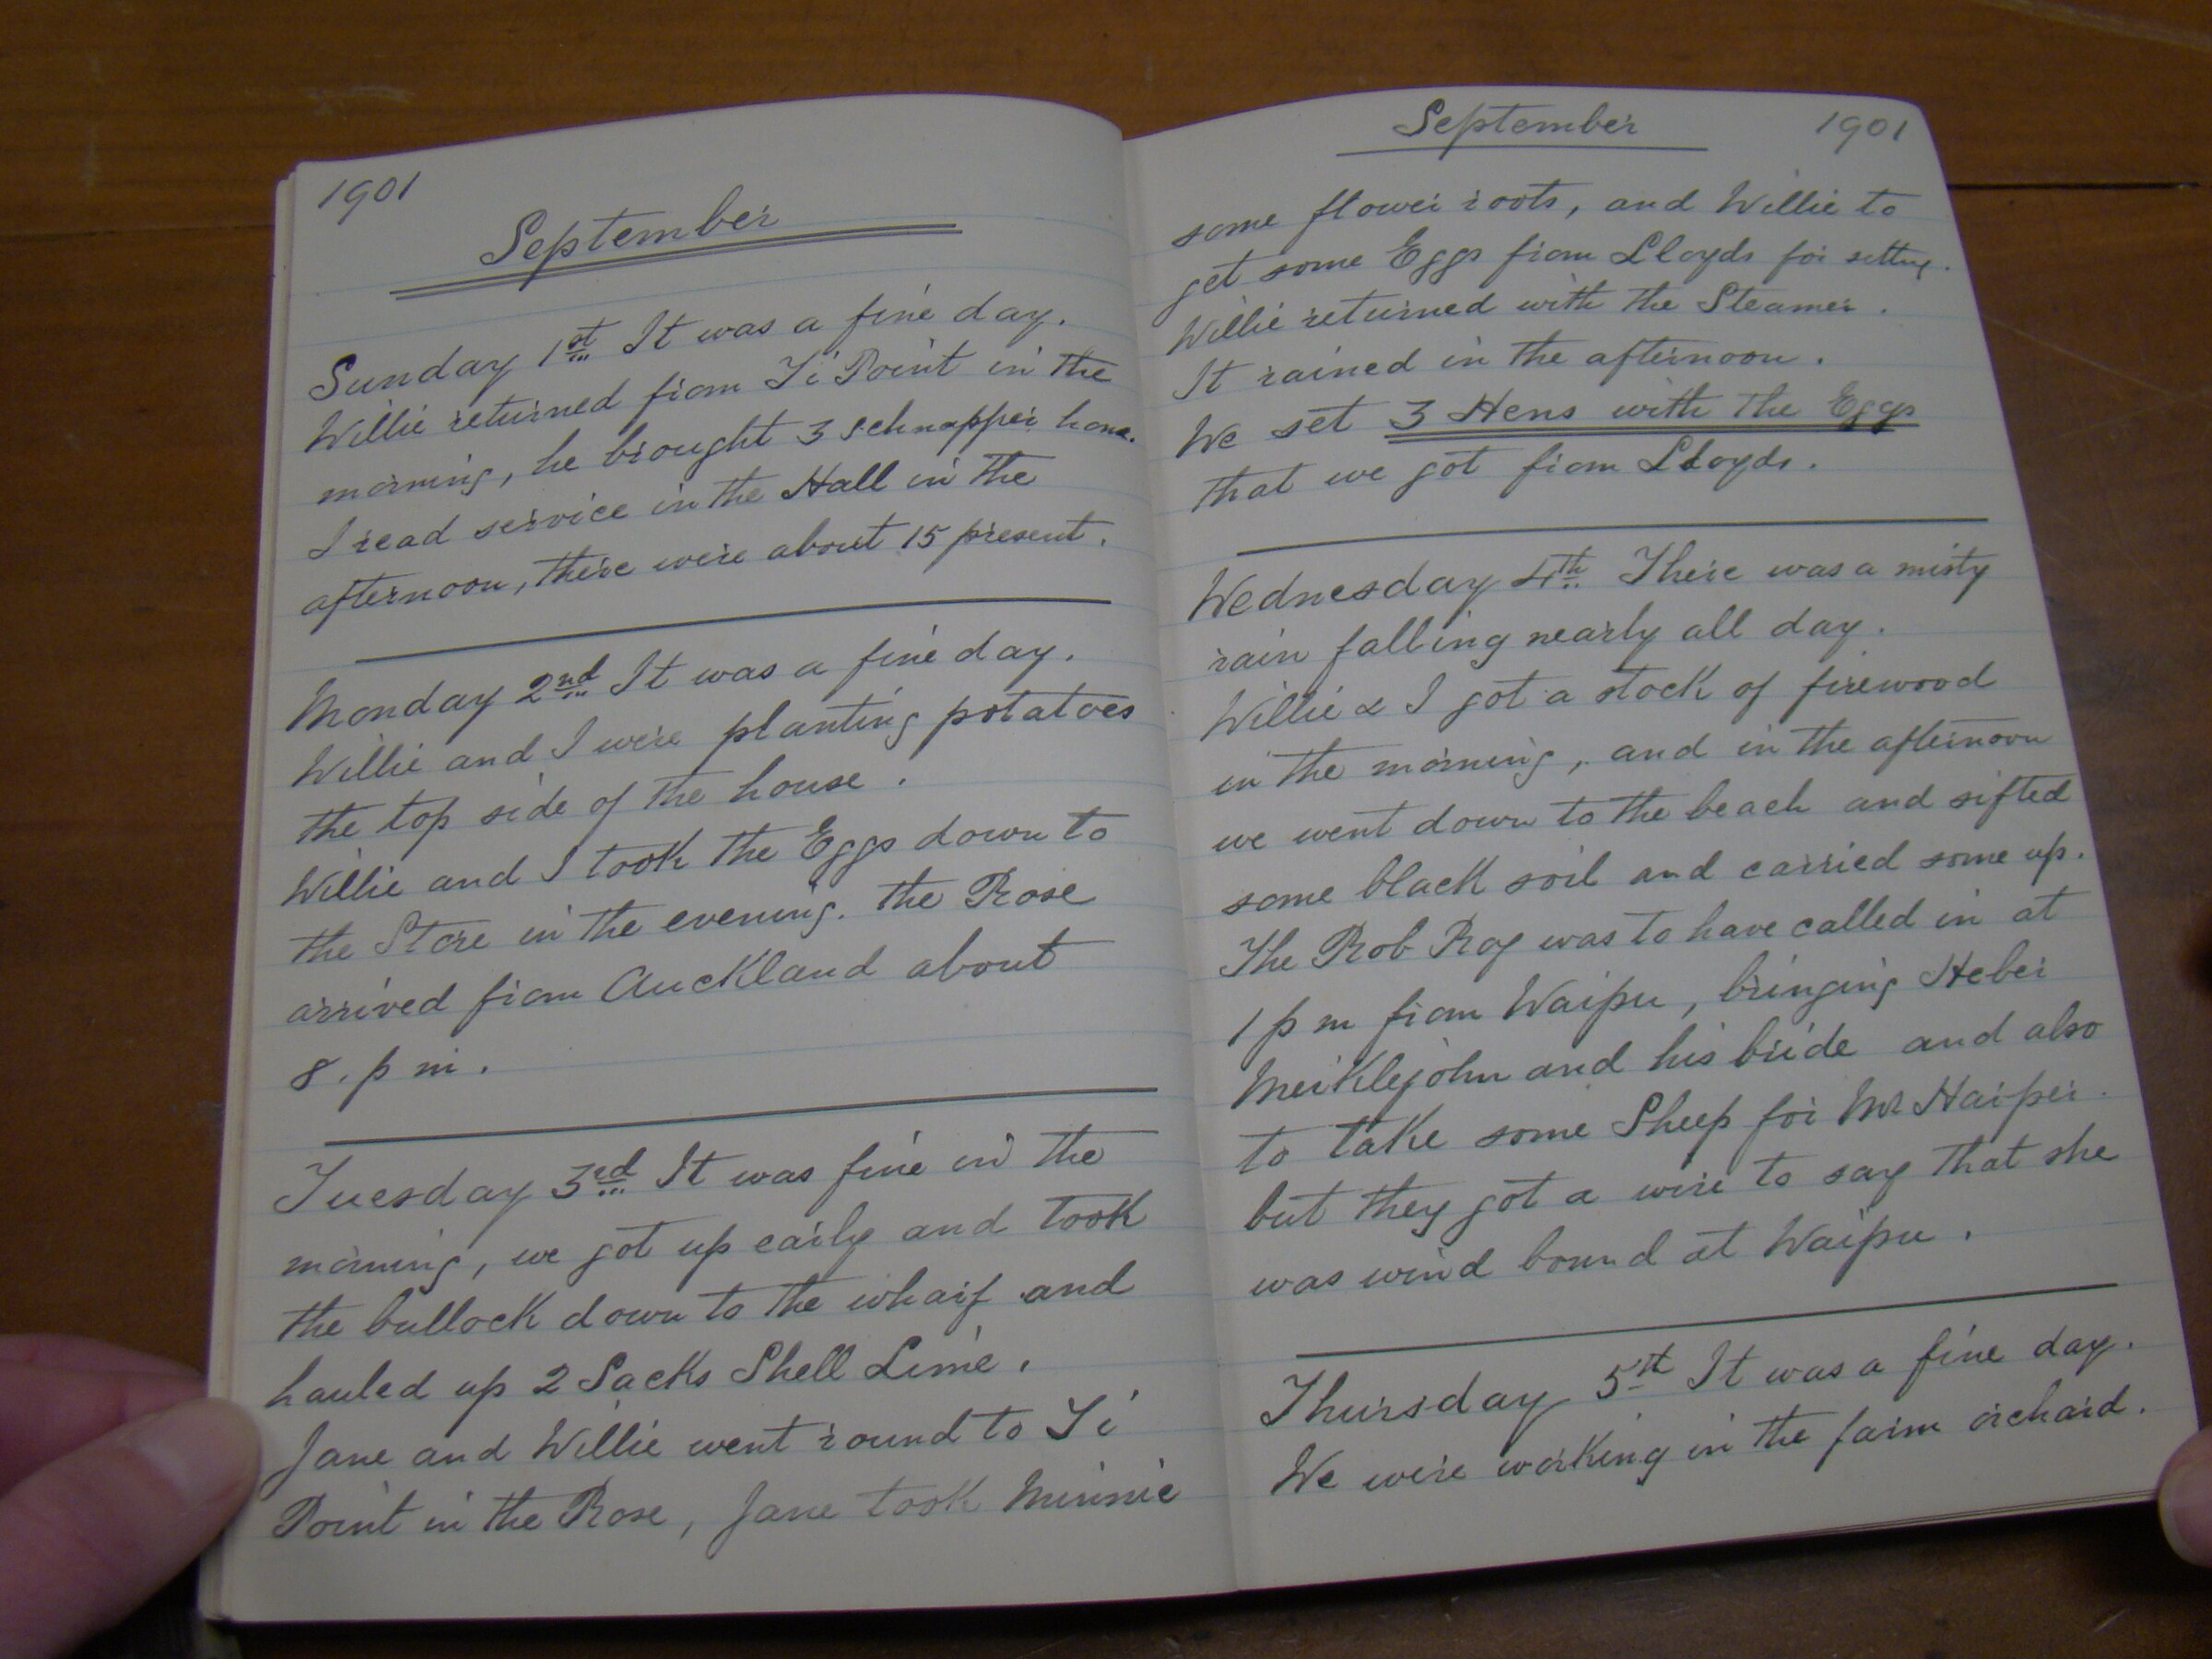 1901
September
Sunday 1st It was a fine day.
Willie returned from Ti Point in the
morning, he brought 3 schnapper home.
I read service in the Hall in the
afternoon, there were about 15 present.
Monday 2nd It was a fine day.
Willie and I were planting potatoes
the top side of the house.
Willie and I took the Eggs down to
the Store in the evening. the Rose
arrived from Auckland about
8. p m.
Tuesday 3rd It was fine in the
morning, we got up early and took
the bullock down to the wharf and
hauled up 2 Sacks Shell Lime.
Jane and Willie went round to Ti
Point in the Rose, Jane took Minnie
September 1901
some flower roots, and Willie to
get some Eggs from Lloyds for setting.
Willie returned with the Steamer.
It rained in the afternoon.
We set 3 Hens with the Eggs
that we got from Lloyds.
Wednesday 4th There was a misty
rain falling nearly all day.
Willie & I got a stock of firewood
in the morning, and in the afternoon
we went down to the beach and sifted
some black soil and carried some up.
The Rob Roy was to have called in at
1 p m from Waipu, bringing Heber
Meiklejohn and his bride and also
to take some Sheep for Mr Harper.
but they got a wire to say that she
was wind bound at Waipu.
Thursday 5st It was a fine day.
We were working in the farm orchard.